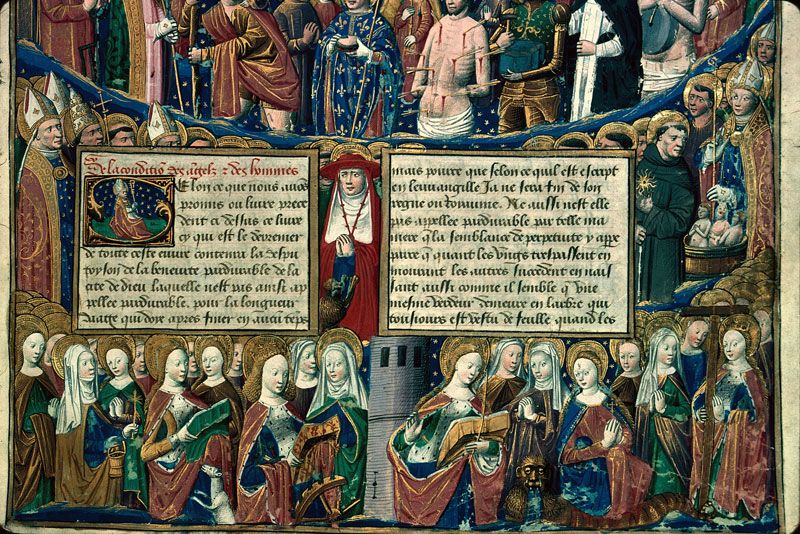 De la conditiõ des angelz ⁊ des hommes
Selon ce que nous auõs
promis ou liure prece
dent ci dessus ce liure
cy qui est le derrenier
de toute ceste euure contenra la despu
toyson de la beneurte pardurable de la
cite de dieu laquelle nest pas ainsi ap
pellee pardurable, pour la longueur
mais pource que selon ce quil est escript
en leuuangille Ja ne sera fin de son
regne ou royaume. Ne aussi nest elle
pas appellee pardurable par telle ma
niere q̃ la semblance de perpetuite y appe
quant les vngs trespassent en
mourant les autres succedent en nais
sant aussi comme il semble q̃ vne
mesme verdeur demeure en larbre qui
tousiours est vestu de fueille quand les